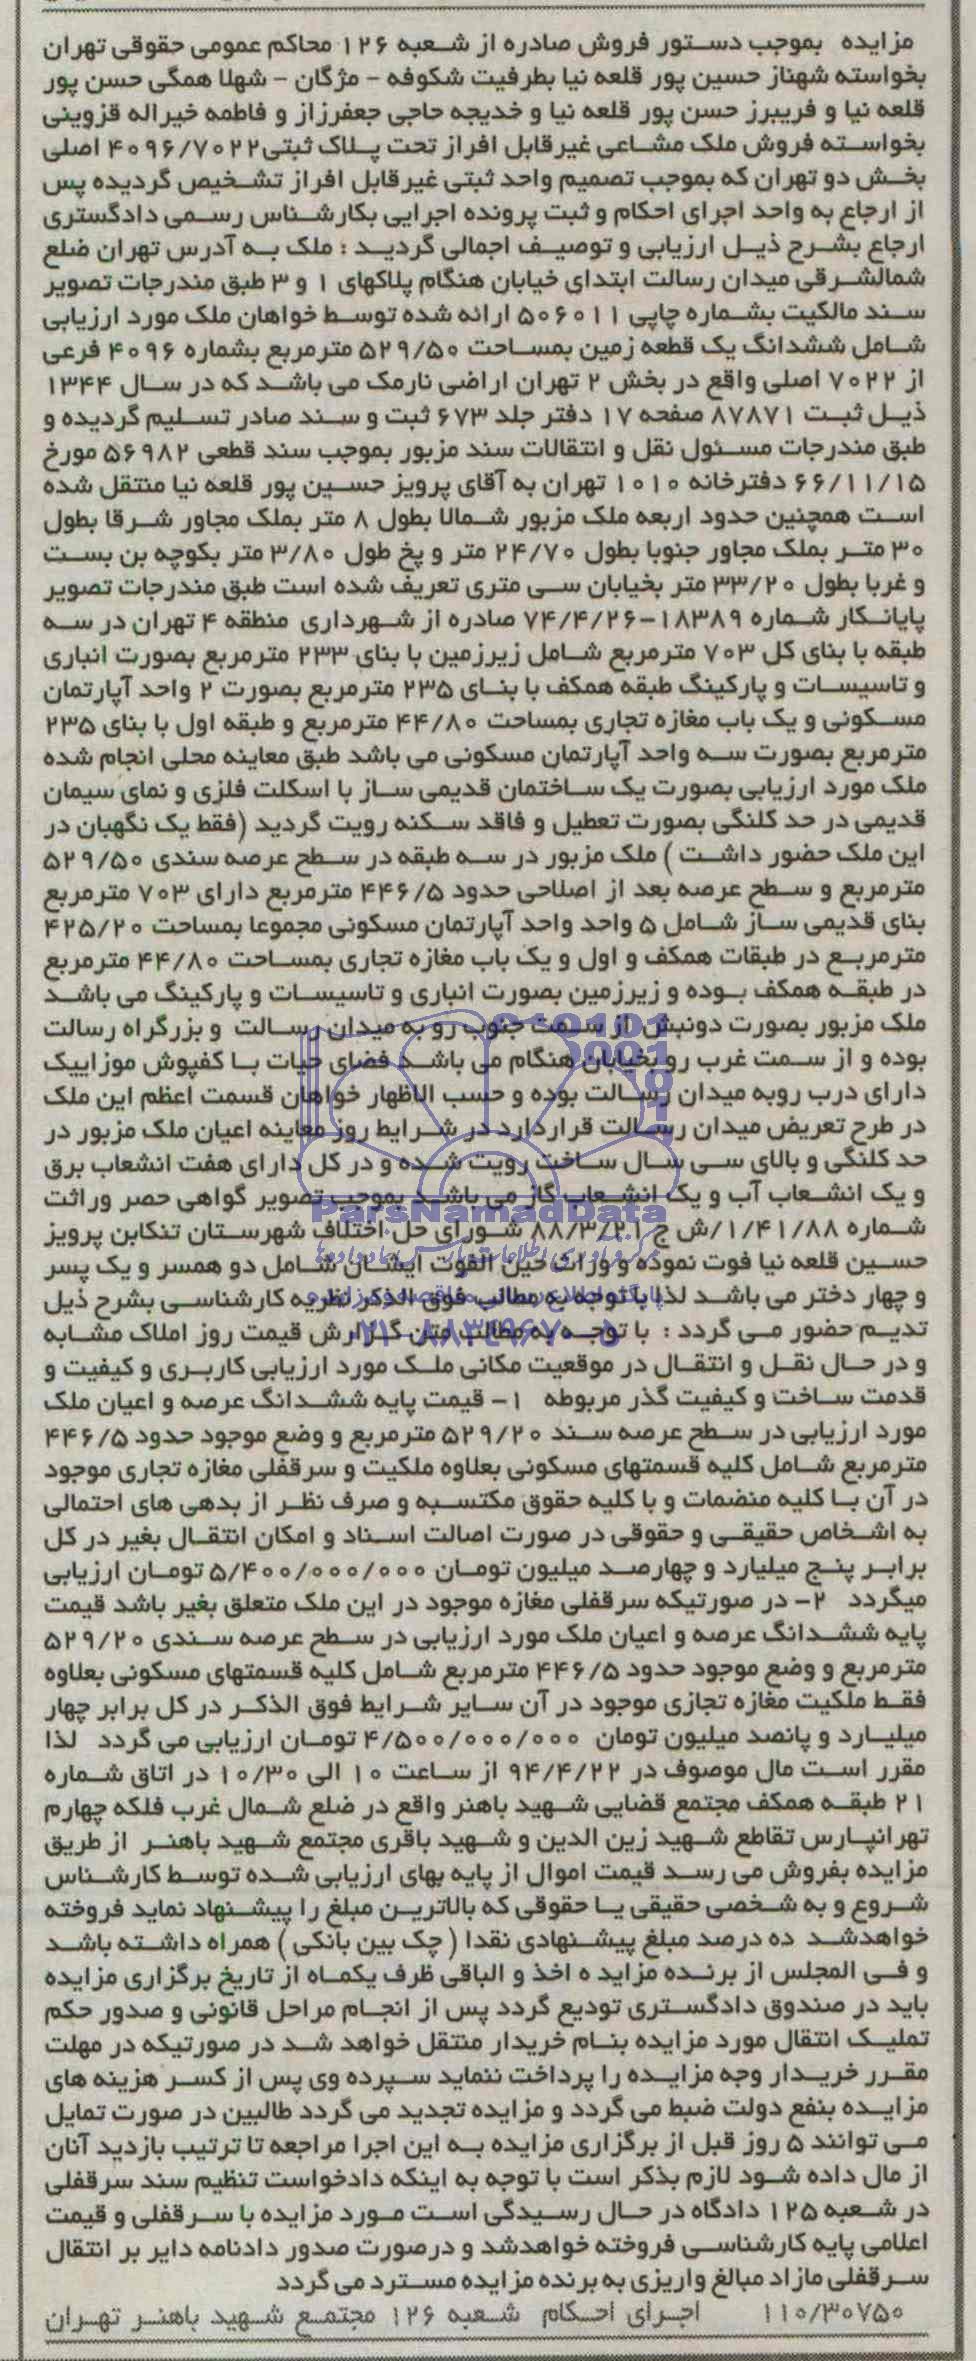 مزایده بموجب دستور فروش صادره از شعبه ۱۲۶ محاکم عمومی حقوقی تهران
بخواسته شهناز حسین پور قلعه نیا بطرفیت شکوفه - مژگان - شهلا همگی حسن پور
قلعه نیا و فریبرز حسن پور قلعه نیا و خدیجه حاجی جعفرزاز و فاطمه خیراله قزوینی
بخواسته فروش ملک مشاعی غیرقابل افراز تحت پلاک ثبتی۴۰۹۶/۷۰۲۲ اصلی
بخش دو تهران که بموجب تصمیم واحد ثبتی غیرقابل افراز تشخیص گردیده پس
از ارجاع به واحد اجرای احکام و ثبت پرونده اجرایی بکارشناس رسمی دادگستری
ارجاع بشرح ذیل ارزیابی و توصیف اجمالی گردید : ملک به آدرس تهران ضلع
شمالشرقی میدان رسالت ابتدای خیابان هنگام پلاکهای ۱ و ۳ طبق مندرجات تصویر
سند مالکیت بشماره چاپی ۵۰۶۰۱۱ ارائه شده توسط خواهان ملک مورد ارزیابی
شامل ششدانگ یک قطعه زمین بمساحت ۵۲۹/۵۰ مترمربع بشماره ۴۰۹۶ فرعی
از ۷۰۲۲ اصلی واقع در بخش ۲ تهران اراضی نارمک می باشد که در سال ۱۳۴۴
ذیل ثبت ۸۷۸۷۱ صفحه ۱۷ دفتر جلد ۶۷۳ ثبت و سند صادر تسلیم گردیده و
طبق مندرجات مسئول نقل و انتقالات سند مزبور بموجب سند قطعی ۵۶۹۸۲ مورخ
۶۶/۱۱/۱۵ دفترخانه ۱۰۱۰ تهران به آقای پرویز حسین پور قلعه نیا منتقل شده
است همچنین حدود اربعه ملک مزبور شمالا بطول ۸ متر بملک مجاور شرقا بطول
۳۰ متر بملک مجاور جنوبا بطول ۲۴/۷۰ متر و پخ طول ۳/۸۰ متر بکوچه بن بست
و غربا بطول ۳۳/۲۰ متر بخیابان سی متری تعریف شده است طبق مندرجات تصویر
پایانکار شماره ۱۸۳۸۹-۷۴/۴/۲۶ صادره از شهرداری منطقه ۴ تهران در سه
طبقه با بنای کل ۷۰۳ مترمربع شامل زیرزمین با بنای ۲۳۳ مترمربع بصورت انباری
و تاسیسات و پارکینگ طبقه همکف با بنای ۲۳۵ مترمربع بصورت ۲ واحد آپارتمان
مسکونی و یک باب مغازه تجاری بمساحت ۴۴/۸۰ مترمربع و طبقه اول با بنای ۲۳۵
مترمربع بصورت سه واحد آپارتمان مسکونی می باشد طبق معاینه محلی انجام شده
ملک مورد ارزیابی بصورت یک ساختمان قدیمی ساز با اسکلت فلزی و نمای سیمان
قدیمی در حد کلنگی بصورت تعطیل و فاقد سکنه رویت گردید (فقط یک نگهبان در
این ملک حضور داشت ) ملک مزبور در سه طبقه در سطح عرصه سندی ۵۲۹/۵۰
مترمربع و سطح عرصه بعد از اصلاحی حدود ۴۴۶/۵ مترمربع دارای ۷۰۳ مترمربع
بنای قدیمی ساز شامل ۵ واحد واحد آپارتمان مسکونی مجموعا بمساحت ۴۲۵/۲۰
مترمربع در طبقات همکف و اول و یک باب مغازه تجاری بمساحت ۴۴/۸۰ مترمربع
در طبقه همکف بوده و زیرزمین بصورت انباری و تاسیسات و پارکینگ می باشد
ملک مزبور بصورت دونبش از سمت جنوب رو به میدان رسالت و بزرگراه رسالت
بوده و از سمت غرب رو بخیابان هنگام می باشد فضای حیات با کفپوش موزاییک
دارای درب روبه میدان رسالت بوده و حسب الاظهار خواهان قسمت اعظم این ملک
در طرح تعریض میدان رسالت قراردارد در شرایط روز معاینه اعیان ملک مزبور در
حد کلنگی و بالای سی سال ساخت رویت شده و در کل دارای هفت انشعاب برق
و یک انشعاب آب و یک انشعاب گاز می باشد بموجب تصویر گواهی حصر وراثت
ParsNamadData
شماره ۱/۴۱/۸۸/ش ح ۸۸/۳/۲۱ شورای حل اختلاف شهرستان تنکابن پرویز
حسین قلعه نیا فوت نموده و وراث حین الفوت ایشان شامل دو همسر و یک پسر
و چهار دختر می باشد لذا با توجه به مطالب فوق الذکر نظریه کارشناسی بشرح ذیل
تدیم حضور می گردد : با توجه به مطالب متن گزارش قیمت روز املاک مشابه
و در حال نقل و انتقال در موقعیت مکانی ملک مورد ارزیابی کاربری و کیفیت و
قدمت ساخت و کیفیت گذر مربوطه ۱- قیمت پایه ششدانگ عرصه و اعیان ملک
مورد ارزیابی در سطح عرصه سند ۵۲۹/۲۰ مترمربع و وضع موجود حدود ۴۴۶/۵
مترمربع شامل کلیه قسمتهای مسکونی بعلاوه ملکیت و سرقفلی مغازه تجاری موجود
در آن با کلیه منضمات و با کلیه حقوق مکتسبه و صرف نظر از بدهی های احتمالی
به اشخاص حقیقی و حقوقی در صورت اصالت اسناد و امکان انتقال بغیر در کل
برابر پنج میلیارد و چهارصد میلیون تومان ۵/۴۰۰/۰۰۰/۰۰۰ تومان ارزیابی
میگردد ۲- در صورتیکه سرقفلی مغازه موجود در این ملک متعلق بغیر باشد قیمت
پایه ششدانگ عرصه و اعیان ملک مورد ارزیابی در سطح عرصه سندی ۵۲۹/۲۰
مترمربع و وضع موجود حدود ۴۴۶/۵ مترمربع شامل کلیه قسمتهای مسکونی بعلاوه
فقط ملکیت مغازه تجازی موجود در آن سایر شرایط فوق الذکر در کل برابر چهار
میلیارد و پانصد میلیون تومان ۴/۵۰۰/۰۰۰/۰۰۰ تومان ارزیابی می گردد لذا
مقرر است مال موصوف در ۹۴/۴/۲۲ از ساعت ۱۰ الی ۱۰/۳۰ در اتاق شماره
۲۱ طبقه همکف مجتمع قضایی شهید باهنر واقع در ضلع شمال غرب فلکه چهارم
تهرانپارس تقاطع شهید زین الدین و شهید باقری مجتمع شهید باهنر از طریق
مزایده بفروش می رسد قیمت اموال از پایه بهای ارزیابی شده توسط کارشناس
شروع و به شخصی حقیقی یا حقوقی که بالاترین مبلغ را پیشنهاد نماید فروخته
خواهدشد ده درصد مبلغ پیشنهادی نقدا ( چک بین بانکی ) همراه داشته باشد
و فی المجلس از برنده مزاید ه اخذ و الباقی ظرف یکماه از تاریخ برگزاری مزایده
باید در صندوق دادگستری تودیع گردد پس از انجام مراحل قانونی و صدور حکم
تملیک انتقال مورد مزایده بنام خریدار منتقل خواهد شد در صورتیکه در مهلت
مقرر خریدار وجه مزایده را پرداخت ننماید سپرده وی پس از کسر هزینه های
مزایده بنفع دولت ضبط می گردد و مزایده تجدید می گردد طالبین در صورت تمایل
می توانند ۵ روز قبل از برگزاری مزایده به این اجرا مراجعه تا ترتیب بازدید آنان
از مال داده شود لازم بذکر است با توجه به اینکه دادخواست تنظیم سند سرقفلی
در شعبه ۱۲۵ دادگاه در حال رسیدگی است مورد مزایده با سرقفلی و قیمت
اعلامی پایه کارشناسی فروخته خواهدشد و درصورت صدور دادنامه دایر بر انتقال
سرقفلی مازاد مبالغ واریزی به برنده مزایده مسترد می گردد
۱۱۰/۳۰۷۵۰ اجرای احکام شعبه ۱۲۶ مجتمع شهید باهنر تهران